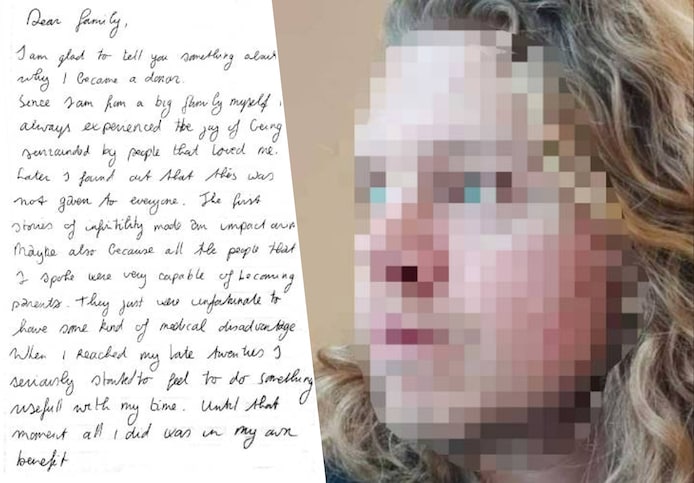 Dear family,
I am glad to tell you something about
why I became a donor.
Since I am from a big family myself I
always experienced the joy of being
surrounded by people that loved me.
Later I found out that this was
not given to everyone. The first
stories of infirtility made an impact
Maybe also because all the people that
I spoke were very capable of becoming
parents. They just were unfortunate to
have some kind of medical disadvantage.
When I reached my late twenties I
seriously started to feel to do something
usefull with my time. Until that
moment all I did was in my own
benefit